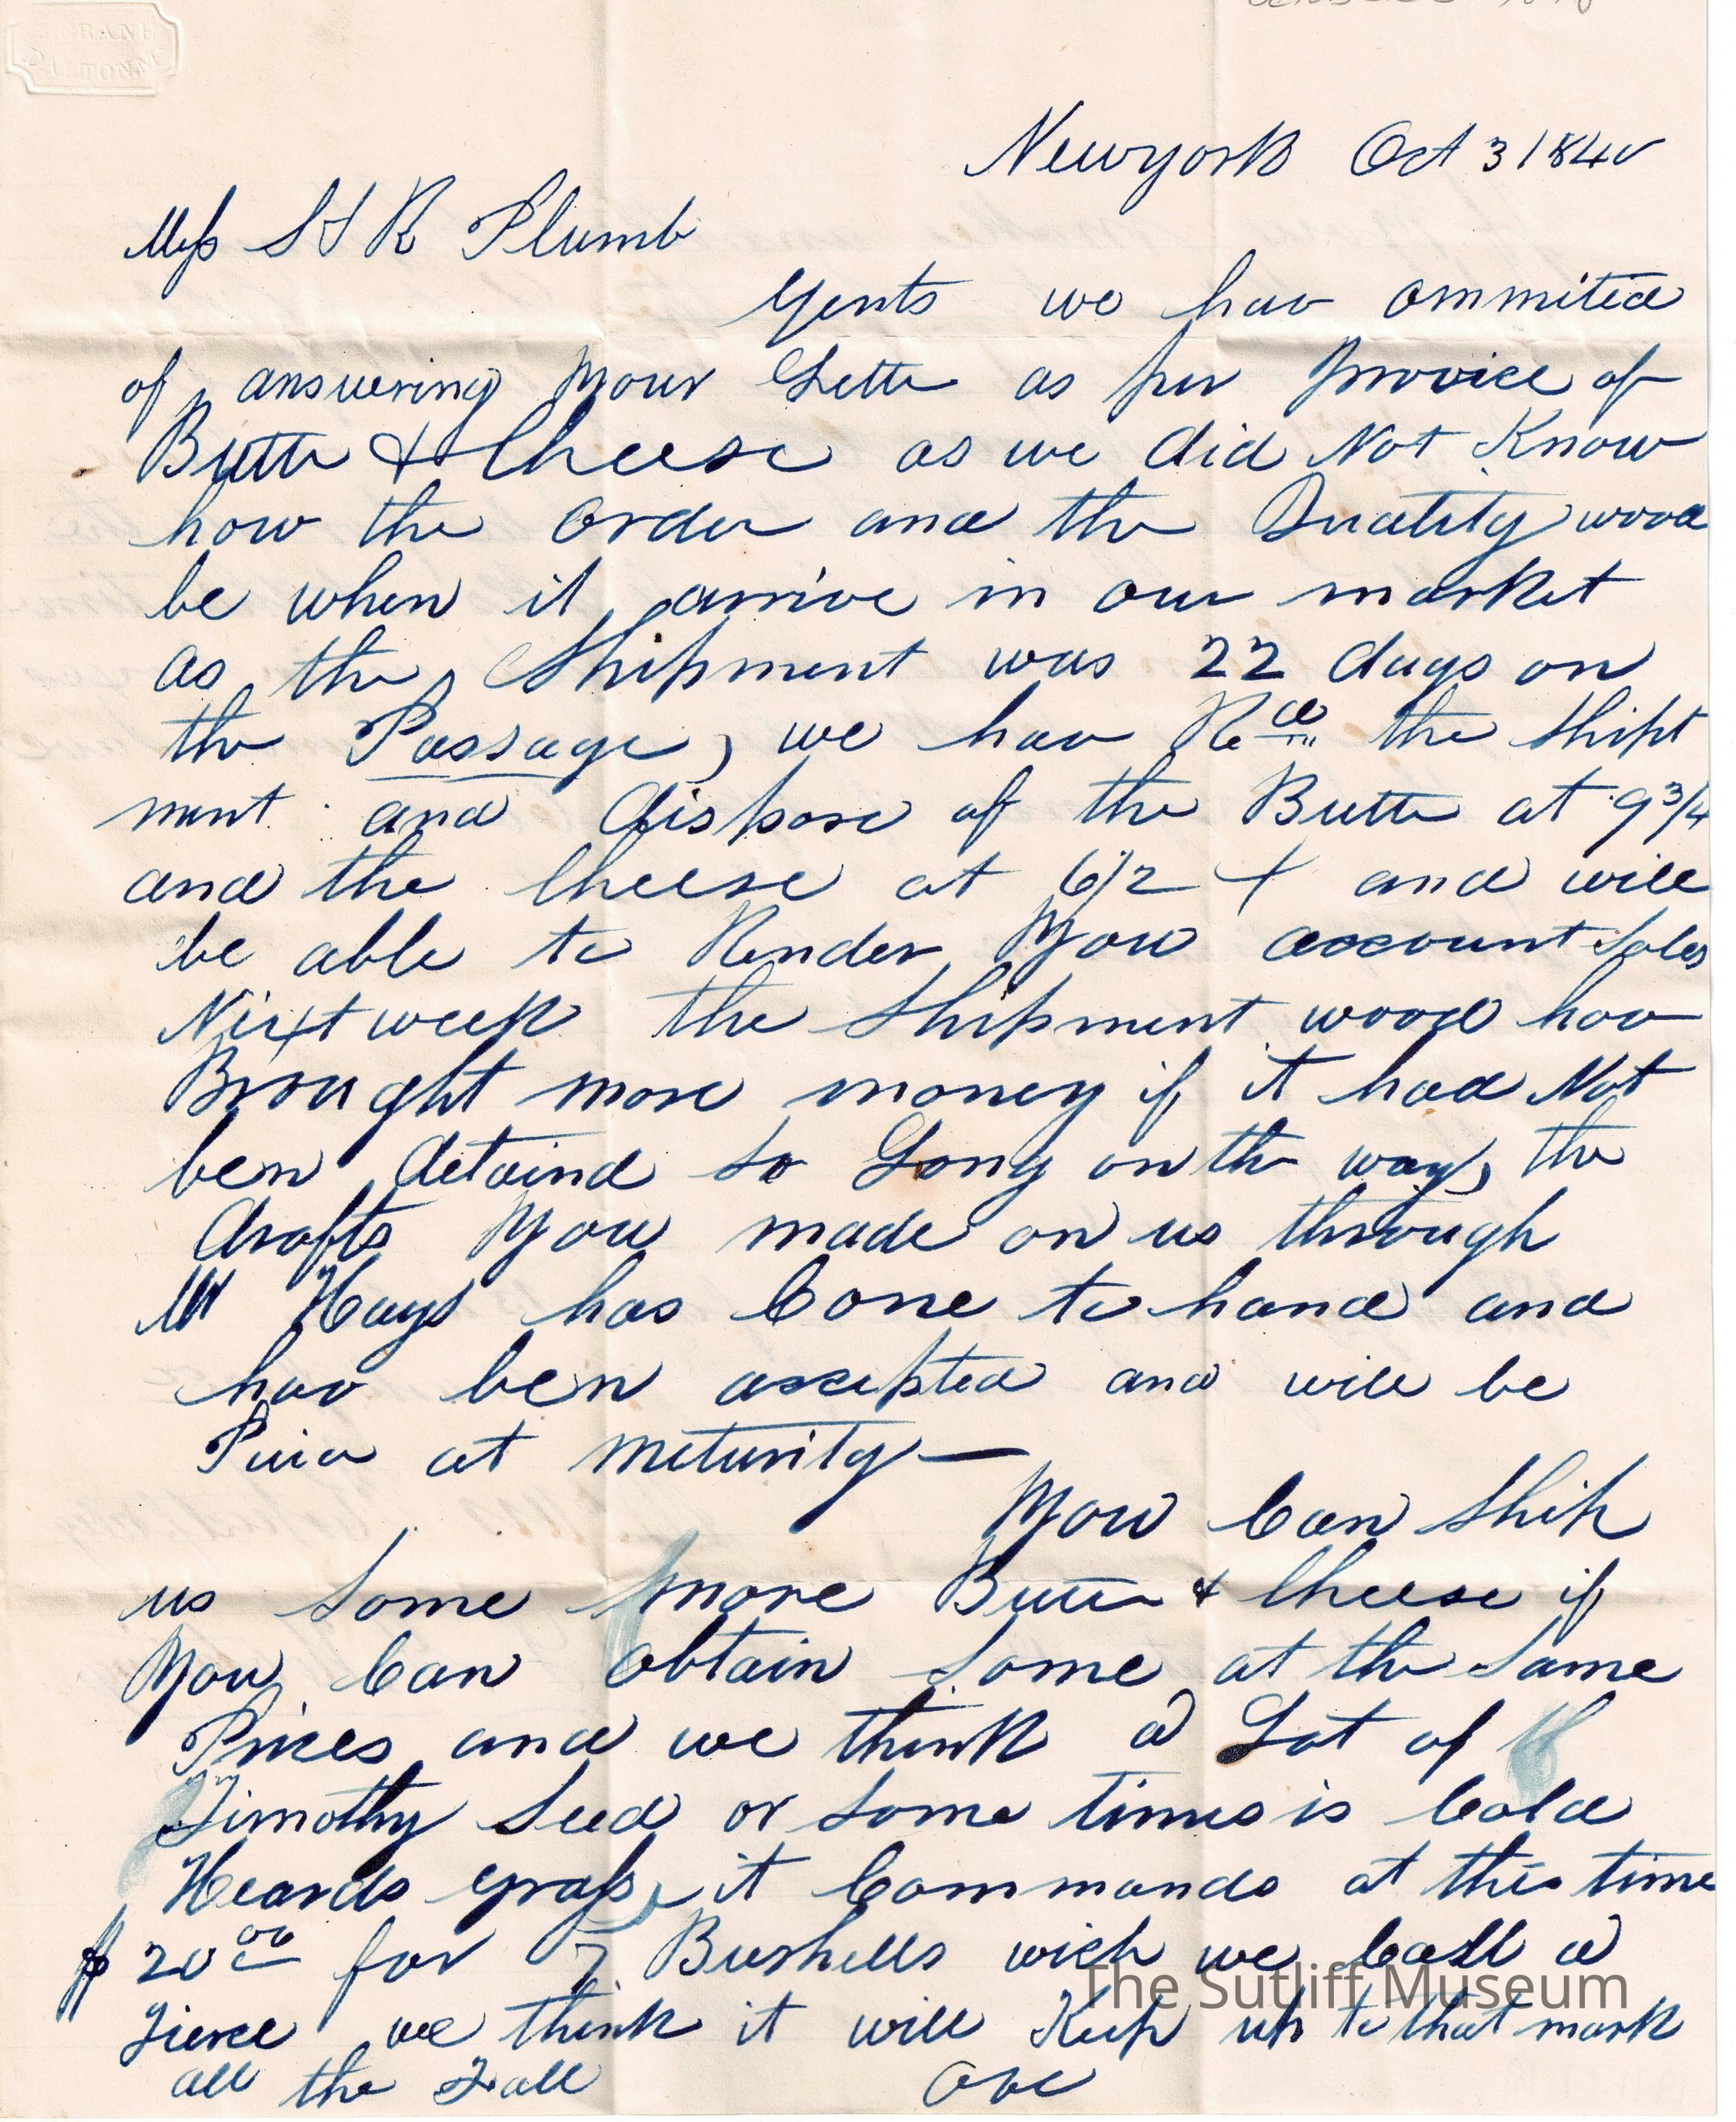 CRANE
DALTON
Newyork Oct 3 184
Mess S & R Plumb
Gents we hav ommited
of answering your Letter as per Invoice of
Butter & Cheese as we did Not Know
how the Order and the Quality wood
be when it arrive in our market
as the Shipment was 22 days on
the Passage, we hav Recd the Ship
ment and dispose of the Butter at 9 3/4
and the Cheese at 6 1/2 and will
be able to Render you account Sales
Next week the Shipment wood hav
Brought more money if it had Not
ben detaind so Long on the way, the
drafts you made on us through
Mr Hays has Come to hand and
hav ben accepted and will be
Paid at meturity —
You Can Ship
us some more Butter & Cheese if
You Can obtain some at the Same
Prices and we think a Lot of
Timothy Seed or some times is Cold
Heards grass, it Commands at this time
$20 00 for 7 Bushells wich we Call a
Tierce we think it will Keep up to that mark
all the Fall
The Sutliff Museum